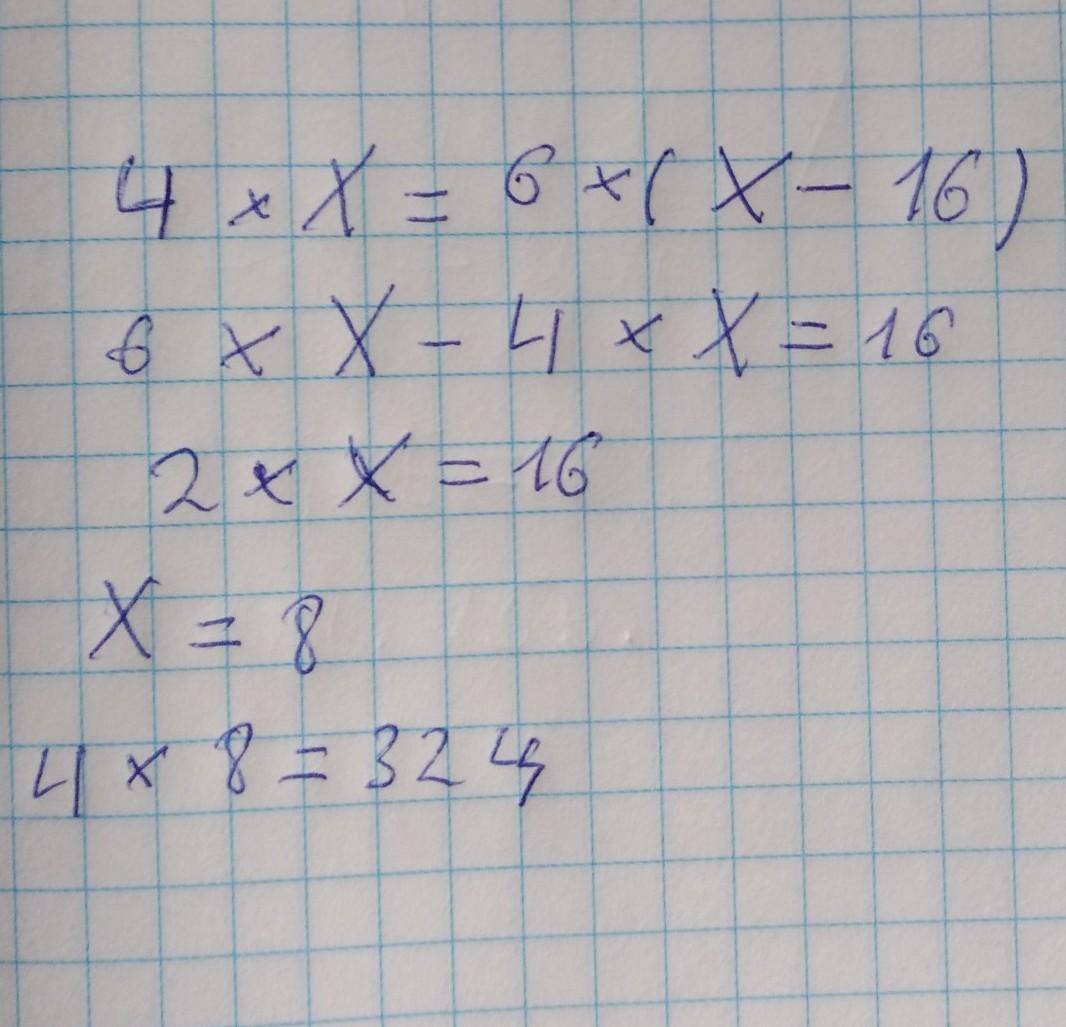 4 × X = 6 × ( X - 16 )
6 × X - 4 × X = 16
2 × X = 16
X = 8
4 × 8 = 32 ц